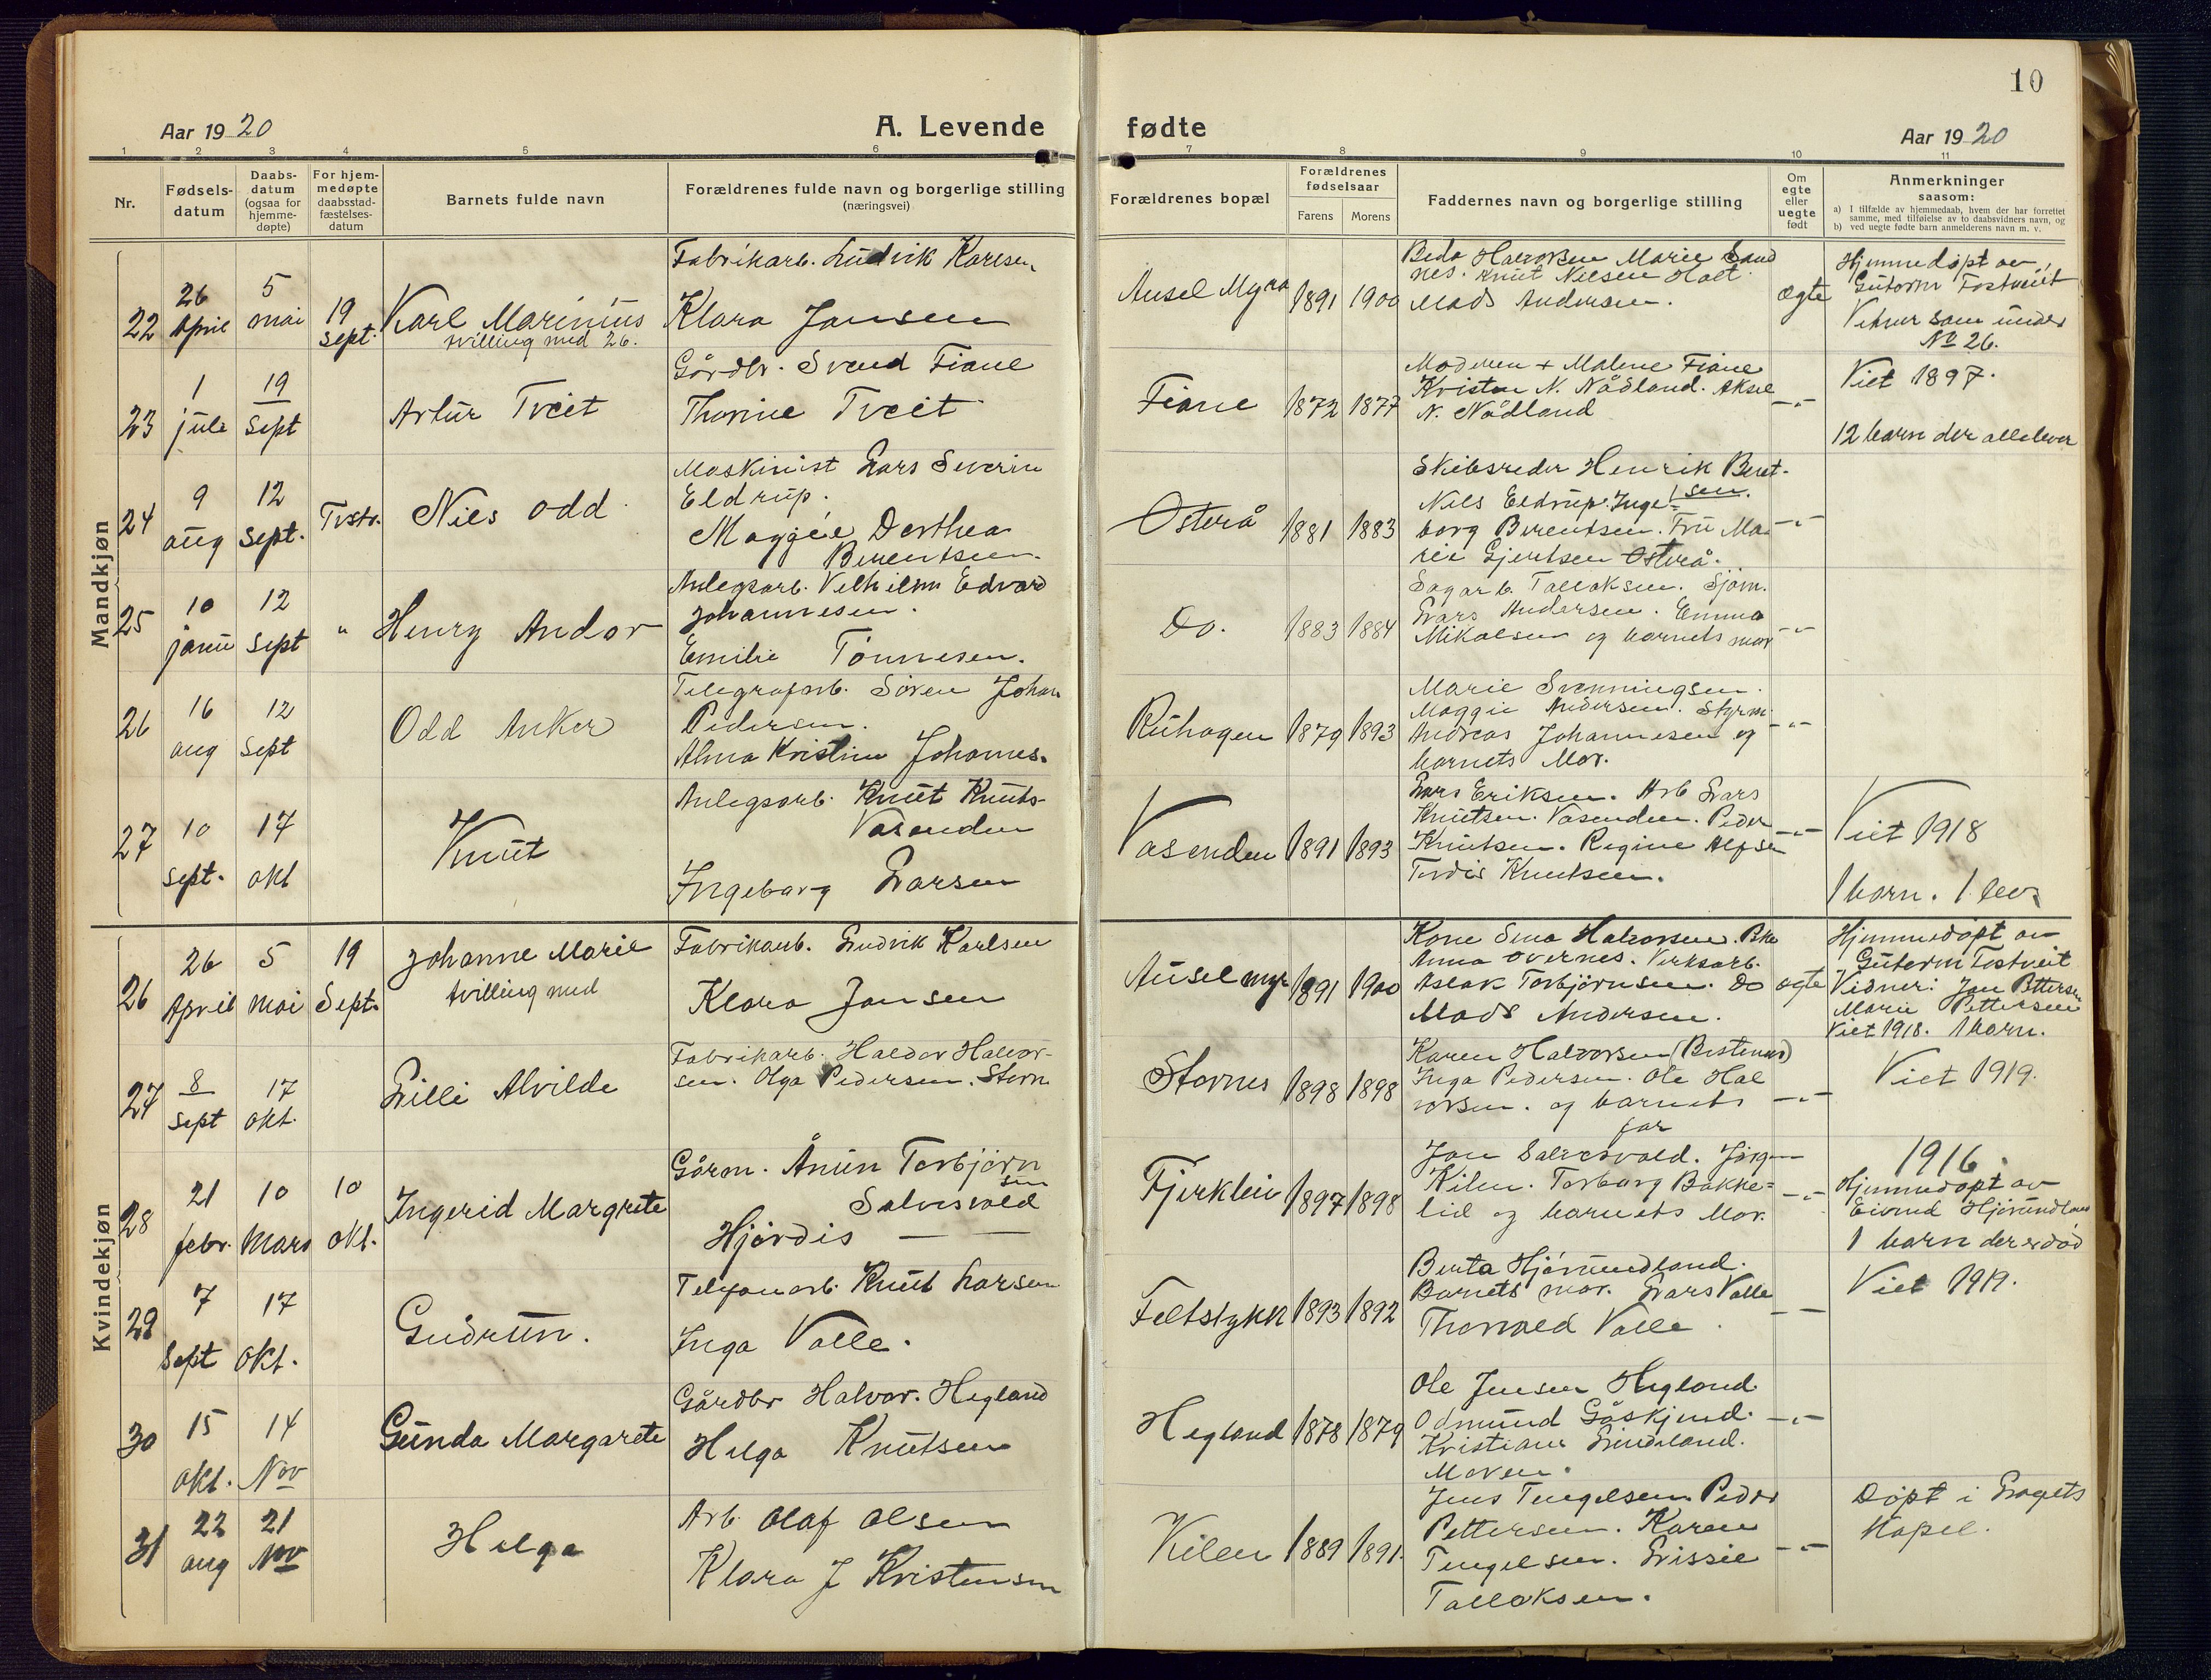 10
Aar 1920
A. Levende
fødte
Aar 1920
1 2 3 4 5 6 7 8 9 10 11
Nr.
Fødsels-
datum
Daabs-
datum
(ogsaa for
hjemme-
døpte)
For hjem-
medøpte
daabsstad-
fæstelses-
datum
Barnets fulde navn
Forældrenes fulde navn og borgerlige stilling
(næringsvei)
Forældrenes bopæl
Forældrenes
fødselsaar
Farens Morens
Faddernes navn og borgerlige stilling
Om
egte
eller
uegte
født
Anmerkninger
saasom:
a) I tilfælde av hjemmedaab, hvem der har forrettet
samme, med tilføielse av to daabsvidners navn, og
b) ved uegte fødte barn anmelderens navn m. v.
Mandkjøn
22
26
April
5
mai
19
Sept.
Karl Marinius
tvilling med 26.
Fabrikarb. Ludvik Karlsen
Klara Jansen
Ausel Myra
1891 1900
Halvorsen Marie Sand
nes. Knut Nilsen Holt
Mads Andersen.
ægte
Hjemmedöpt av
Gutorm Tostveit
som under
No 26.
23
1
juli
19
Sept
Artur Tveit
Gårdbr. Svend Fiane
Thorine Tveit
Fiane
1872 1877
Moderen + Malene Fiane
Kristen N. Nådland. Aksel
N. Nådland
-"-
Viet 1897.
12 barn der alle lever
24
9
aug
12
Sept.
Tvstr.
Niels Odd
Maskinist Lars Severin
Eldrup.
Maggie Dorthea
Berentsen.
Osterå
1881 1883
Skibsreder Henrik Berent-
sen.
Nils Eldrup. Inge-
borg Berentsen. Fru Ma-
rie Gjertsen Osterå.
-"-
25
10
juni
12
Sept
"
Henry Andor
Anlegsarb. Vilhelm Edvard
Johannesen.
Emilie Tönnesen.
Do.
1883 1884
Sagarb. Tallaksen. Sjöm.
Lars Andersen. Emma
Mikalsen og barnets mor
-"-
26
16
aug
12
Sept
Odd Anker
Telegrafarb. Sören Johan
Pedersen.
Alma Kristine Johannes.
Ruhagen
1879 1893
Marie Svenningsen.
Maggie Andersen. Styrm.
Andreas Johannesen og
barnets Mor.
-"-
27
10
Sept.
17
okt
Knut
Anlegsarb. Knut Knuts-
Vasenden
Ingeborg Larsen
Vasenden
1891 1893
Lars Eriksen. Arb Lars
Knutsen. Vasenden. Peder
Knutsen. Regine Alfsen
Tordis Knutsen.
-"-
Viet 1918
1 barn. 1 lev.
Kvindekjøn
26
26
April
5
mai
19
Sept.
Johanne Marie
tvilling med
Fabrikarb. Ludvik Karlsen
Klara Jansen
Ausel myr
1891 1900
Kone Sina Halvorsen.
Anna Overnes. Verksarb.
Aslak Torbjörnsen. Do
Mads Andersen.
ægte
Hjemmedöpt av
Gutorm Tostveit
Vidner: Jan Pettersen
Marie Pettersen
Viet 1918. 1 barn.
27
8
Sept
17
okt.
Lilli Alvilde
Fabrikarb. Haldor Halvor-
sen. Olga Pedersen. Storn
Stornes
1898 1898
Karen Halvorsen (Bestemor)
Inga Pedersen. Ole Hal
vorsen. og barnets
far
-"-
Viet 1919.
28
21
febr.
10
Mars
10
okt.
Ingerid Margrete
Gårdm. Ånun Torbjörn
sen
Salvesvold
Hjördis — —
Fjerkleiv
1897 1898
Jon Salvesvold. Jörgen
Kilen. Torborg Bakke-
lid og barnets Mor.
-"-
1916.
Hjemmedöpt av
Eivind Hjörundland
1 barn der er död
29
7
Sept
17
okt.
Gudrun.
Telefonarb. Knut Larsen
Inga Valle.
Feltstykk
1893 1892
Berta Hjörundland.
Barnets mor. Lars Valle
Thorvald Valle.
—
Viet 1919.
30
15
okt.
14
Nov
Gunda Margarete
Gårdbr Halvor. Hegland
Helga Knutsen
Hegland
1878 1879
Ole Jensen Hegland
Odmund Gåskjend.
Kristiane Lindeland.
Moren.
-"-
31
22
aug
21
Nov
Helga
Arb. Olaf Olsen
Klara J Kristensen
Kilen
1889 1891.
Jens Tengelsen. Peder
Pettersen. Karen
Tengelsen. Lissie
Tallaksen.
-"-
Döpt i Sragets
Kapel.